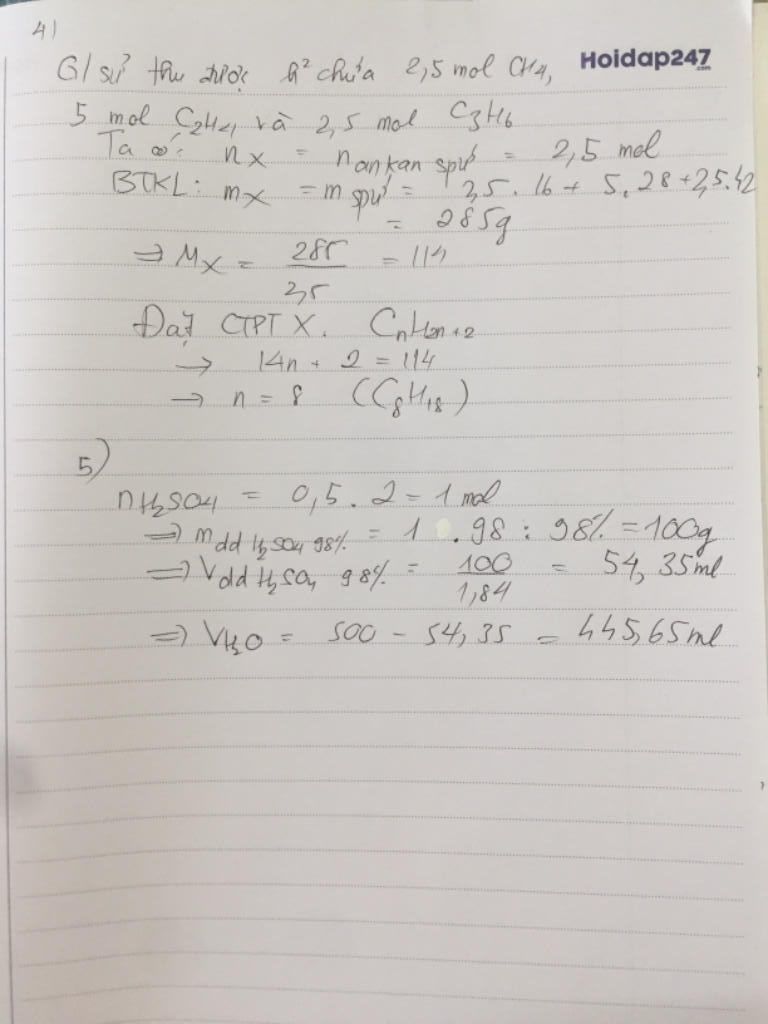 4)
G/sử thu được h² chứa 2,5 mol CH4,
Hoidap247.com
5 mol C2H4 và 2,5 mol C3H6
Ta có: nX = nankan spứ = 2,5 mol
BTKL: mX = mspứ = 2,5.16 + 5.28 + 2,5.42
= 285g
⇒ MX = 285/2,5 = 114
Đặt CTPT X. CnH2n+2
→ 14n + 2 = 114
→ n = 8 (C8H18)
5)
nH2SO4 = 0,5.2 = 1 mol
⇒ mdd H2SO4 98% = 1.98 : 98% = 100g
⇒ Vdd H2SO4 98% = 100/1,84 = 54,35ml
⇒ VH2O = 500 - 54,35 = 445,65ml